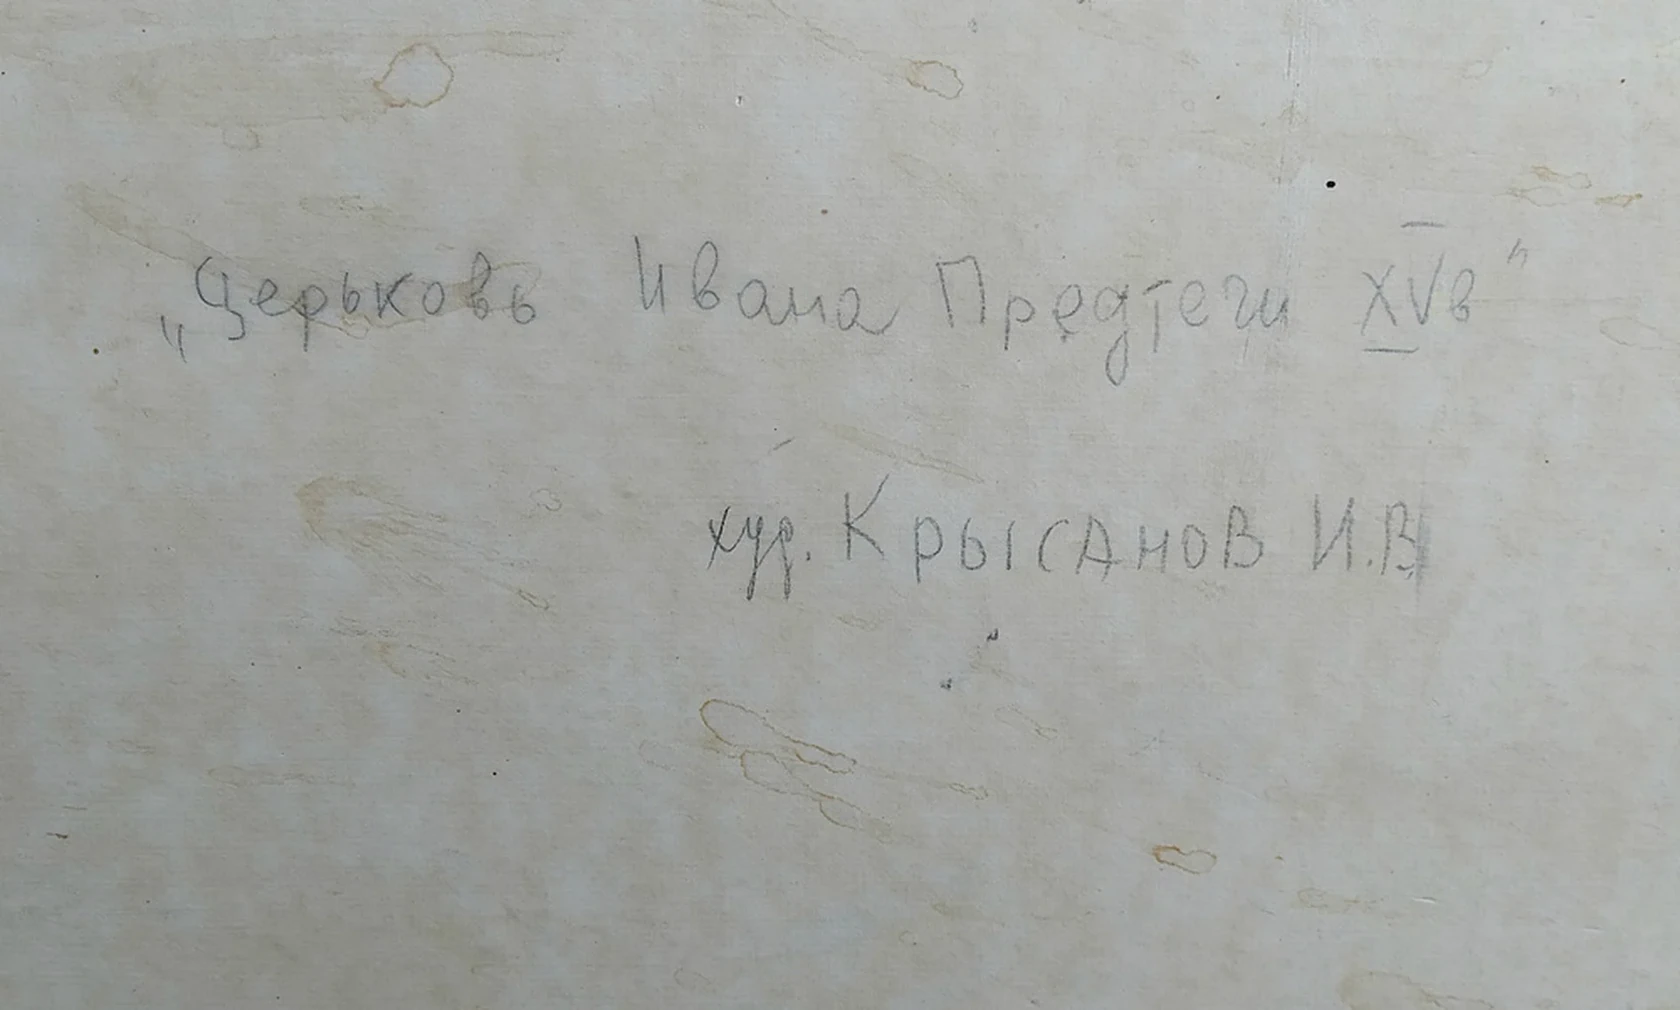 „Церьковь Ивана Предтечи XVв"
худ. Крысанов И.В.